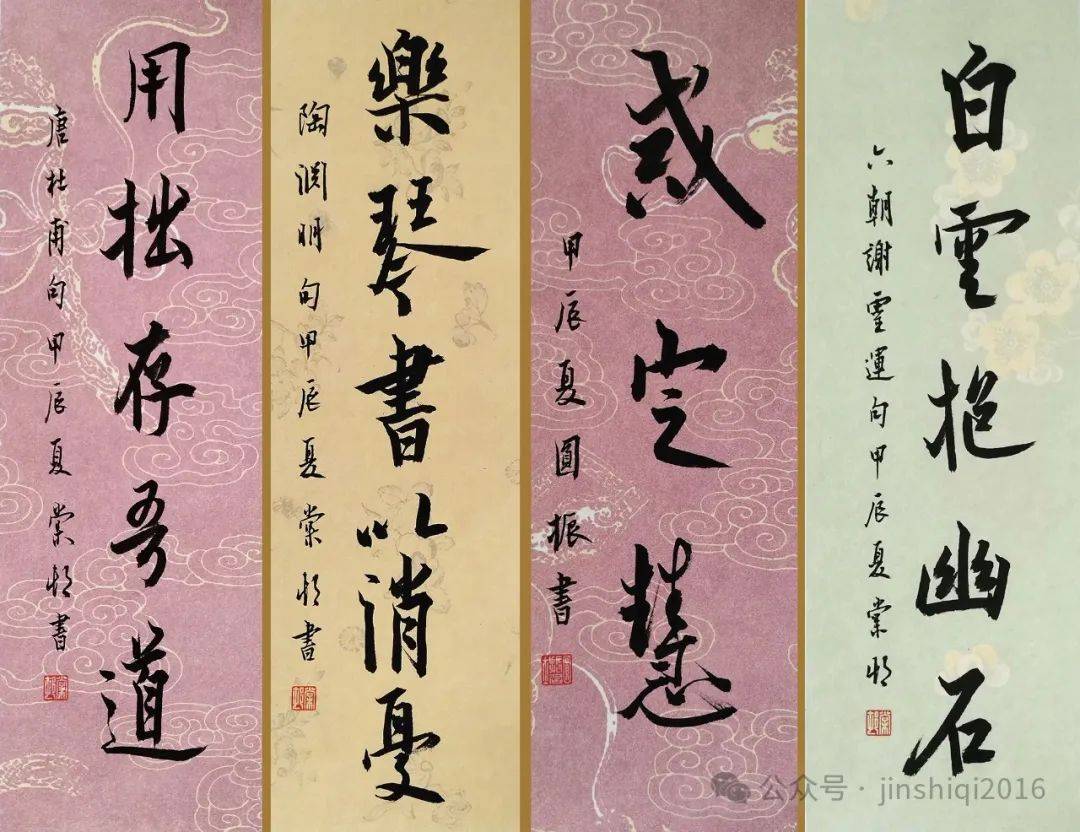 白雲抱幽石
六朝謝靈運句甲辰夏棠
戒定慧
甲辰夏圓振書
樂琴書以消憂
陶淵明句甲辰夏棠書
用拙存吾道
唐杜甫句甲辰夏棠書
公众号·jinshiqi2016